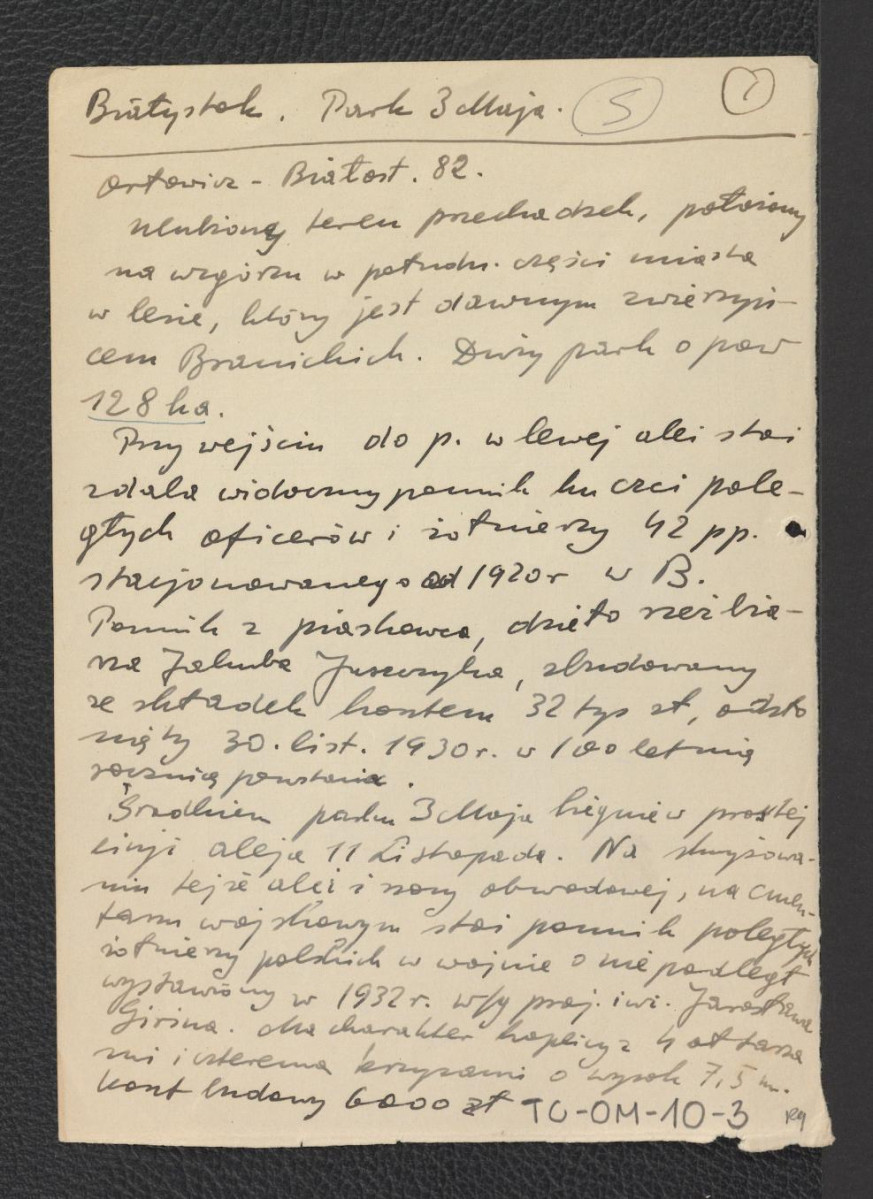 Białystok. Park 3 Maja. S 1
Orłowicz - Białost. 82.
Ulubiony teren przechadzek, położony
na wzgórzu w połudn. części miasta
w lesie, który jest dawnym zwierzyń-
cem Branickich. Duży park o pow
128 ha.
Przy wejściu do p. w lewej alei stoi
zdala widoczny pomnik ku czci pole-
głych oficerów i żołnierzy 42 pp.
stacjonowanego od 1920 r w B.
Pomnik z piaskowca, dzieło rzeźbia-
rza Jakuba Juszczyka, zbudowany
ze składek kosztem 32 tys zł, odsło
nięty 30. list. 1930 r. w 100 letnią
rocznicę powstania.
Środkiem parku 3 Maja biegnie w prostej
linji aleja 11 Listopada. Na skrzyżowa-
niu tejże alei i szosy obwodowej, na cmen-
tarzu wojskowym stoi pomnik poległych
żołnierzy polskich w wojnie o niepodległ
wystawiony w 1932 r. w/g proj. inż. Jarosława
Girina. Ma charakter kaplicy z 4 ołtarza
mi i czterema krzyżami o wysok 7,5 m.
koszt budowy 6000 zł TO-OM-10-3